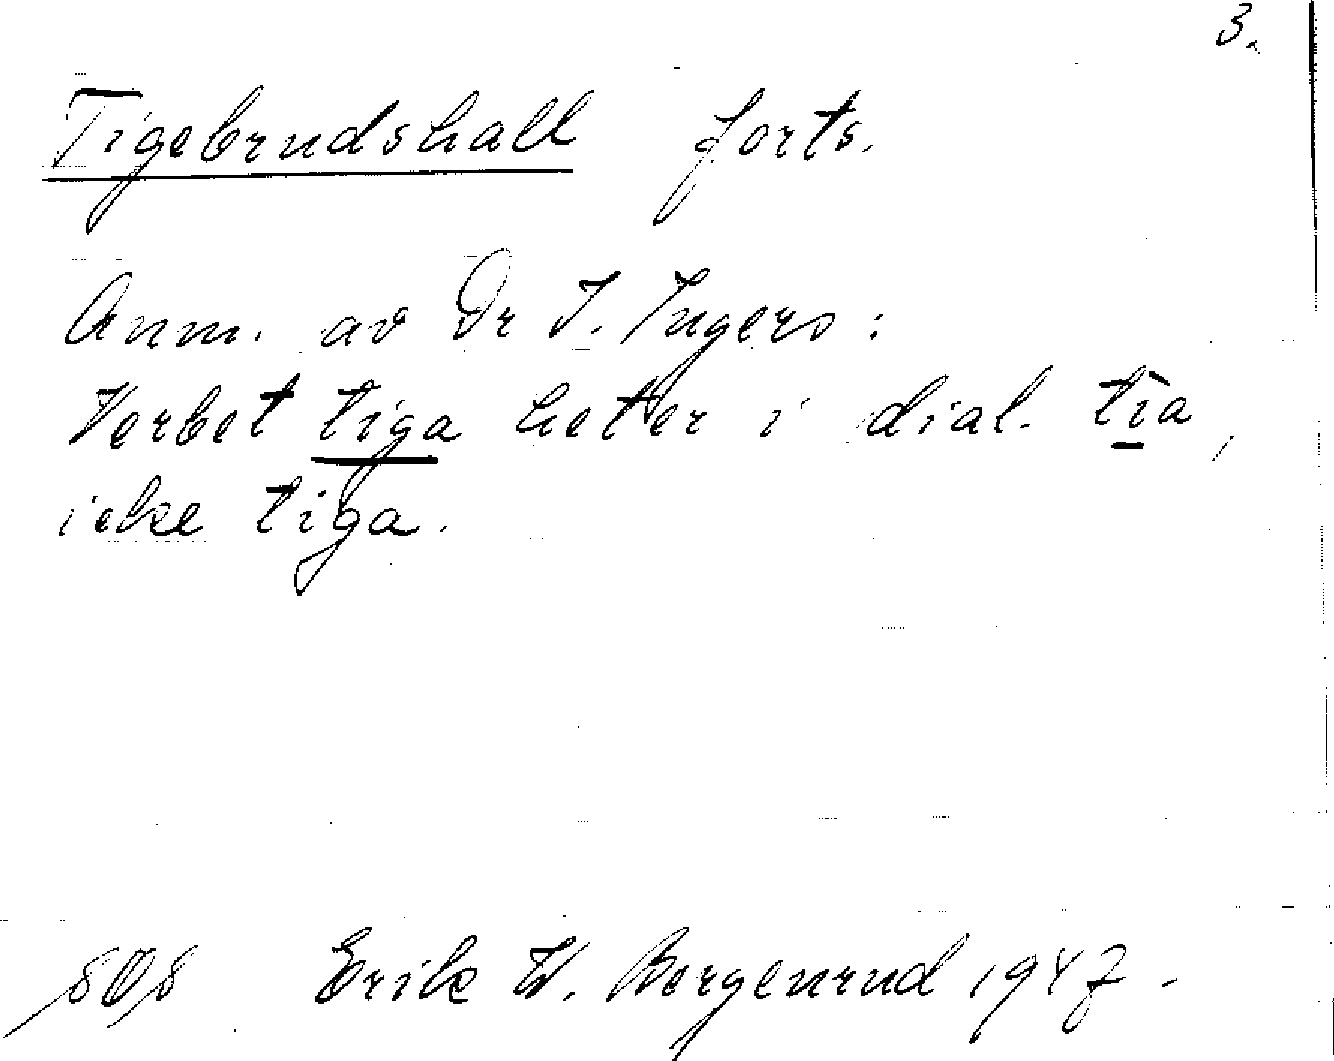 3.
Tigebrudshall forts.
Anm. av Dr I. Ingers:
Verbet tiga heter i dial. tìa,
icke tiga.
Erik W. Borgenrud 1947.